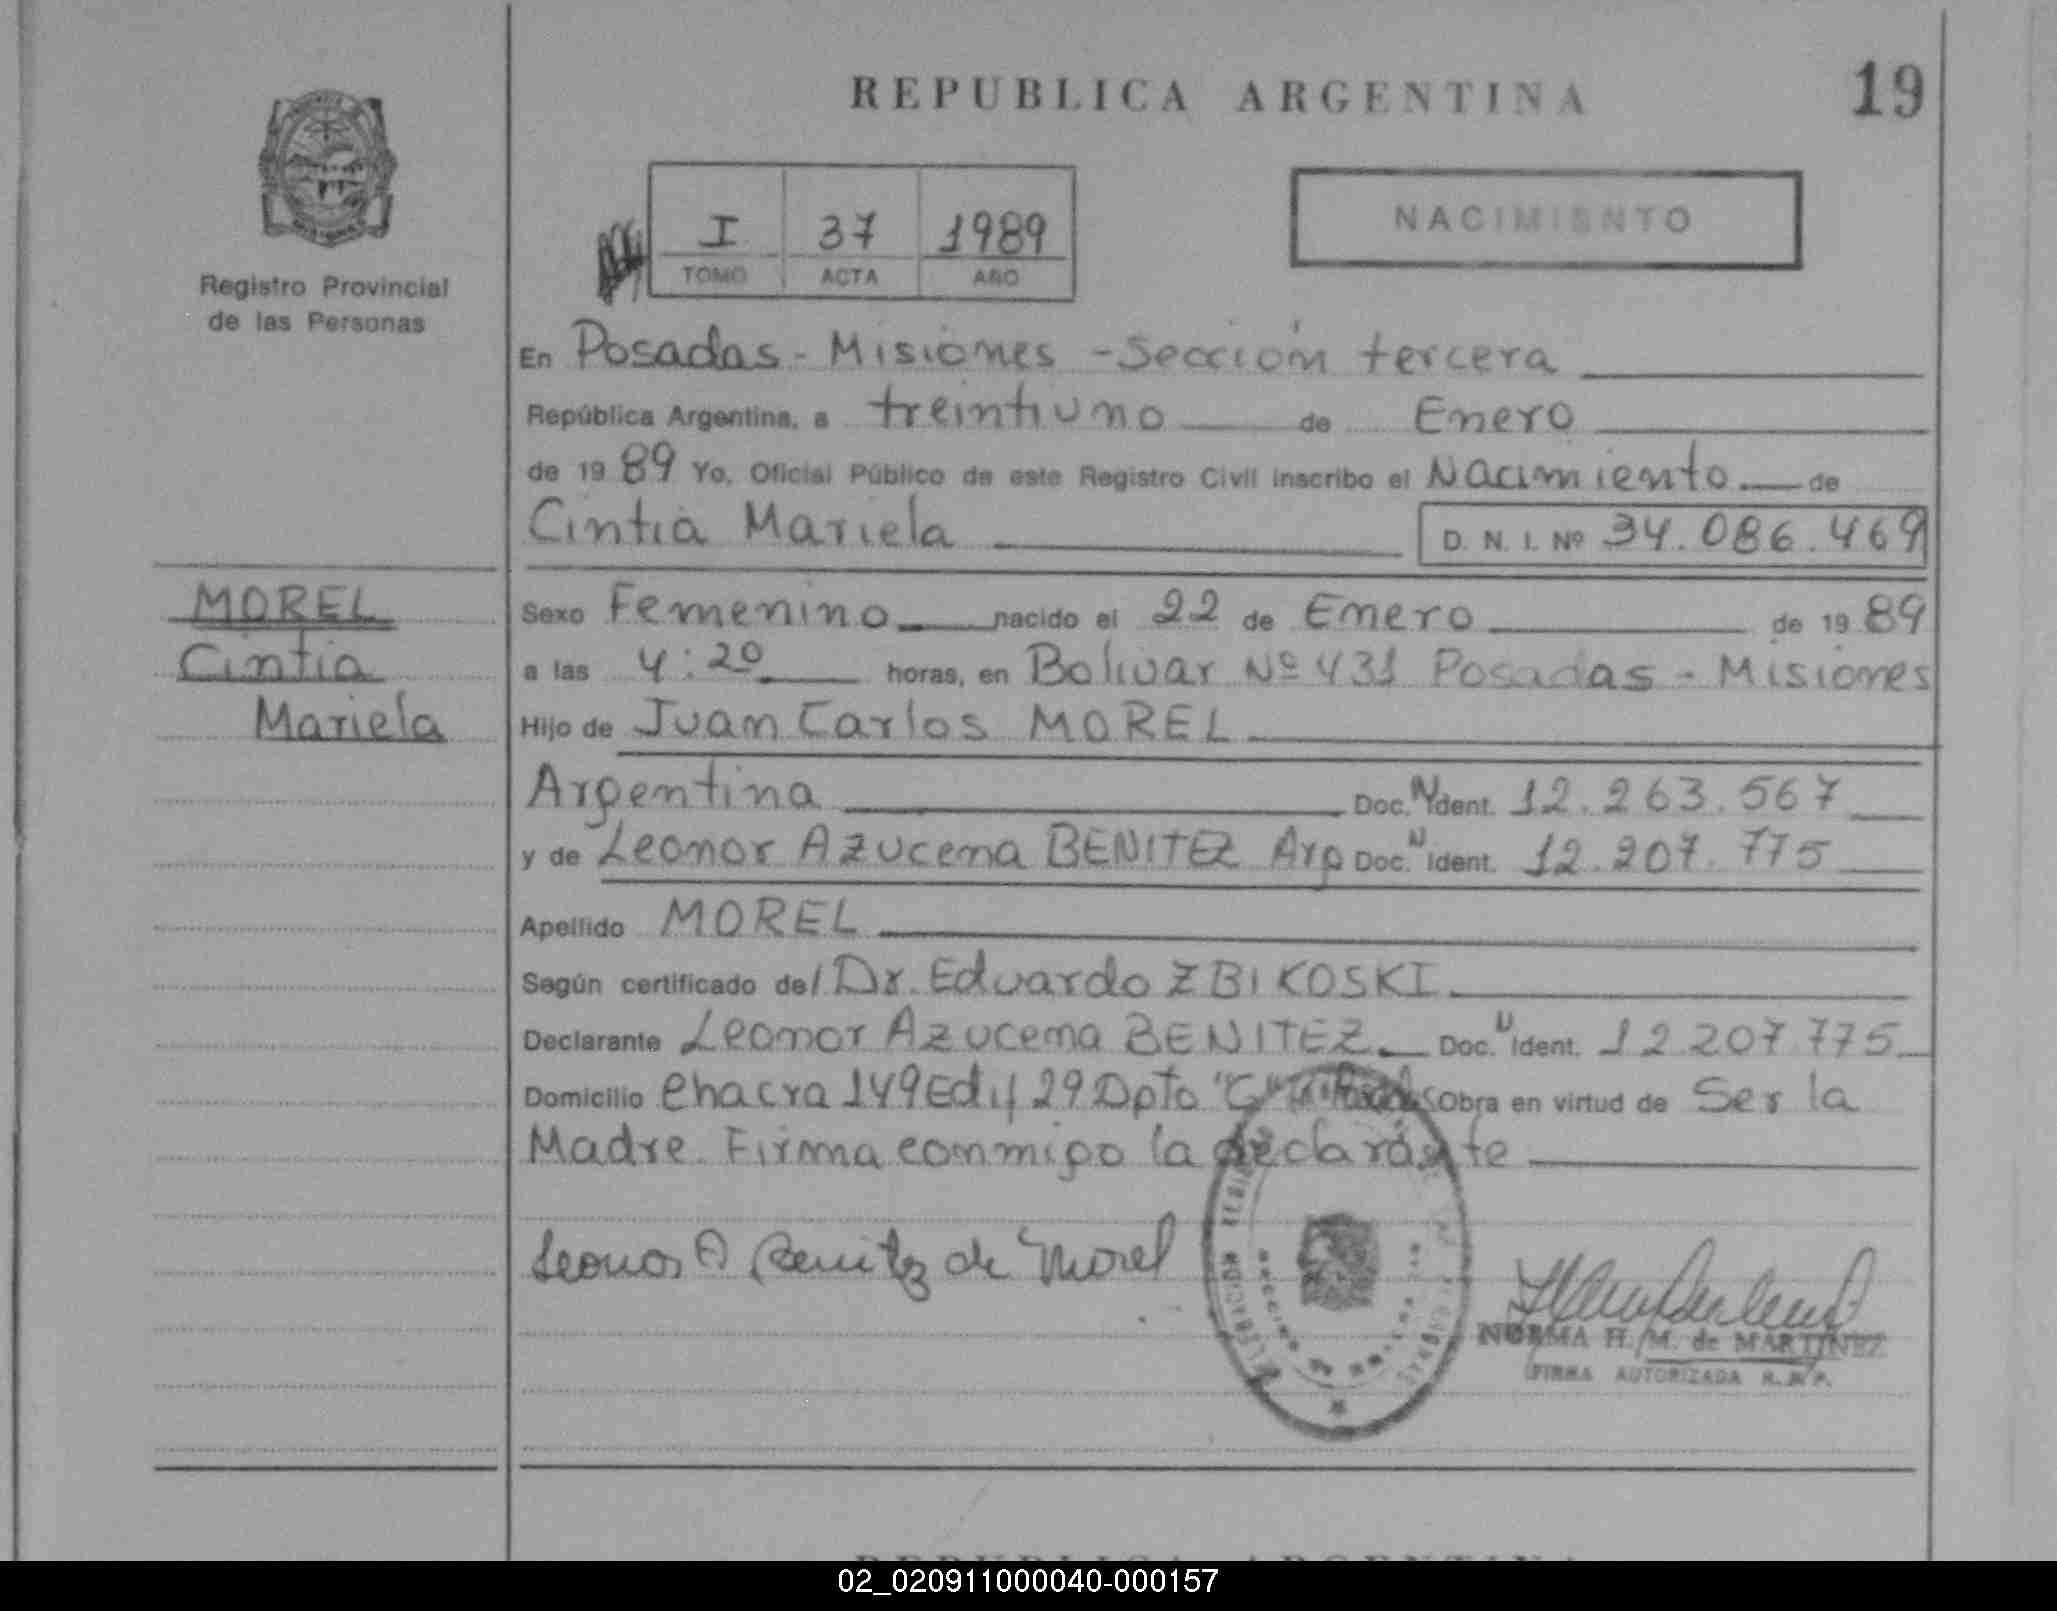 REPUBLICA ARGENTINA
19
Registro Provincial
de las Personas
I 37 1989
TOMO ACTA AÑO
NACIMIENTO
En Posadas - Misiones - Sección tercera
República Argentina, a treintiuno de Enero
de 19 89 Yo, Oficial Público de este Registro Civil inscribo el Nacimiento de
Cintia Mariela D. N. I. Nº 34.086.469
MOREL
Cintia
Mariela
Sexo Femenino nacido el 22 de Enero de 19 89
a las 4:20 horas, en Bolivar Nº 431 Posadas - Misiones
Hijo de Juan Carlos MOREL
Argentina Doc. N Ident. 12.263.567
y de Leonor Azucena BENITEZ Arg Doc. N Ident. 12.207.775
Apellido MOREL
Según certificado del Dr. Eduardo ZBIKOSKI
Declarante Leonor Azucena BENITEZ Doc. N Ident. 12 207 775
Domicilio Chacra 149 Edif 29 Dpto "C" Obra en virtud de Ser la
Madre. Firma conmigo la declarante
Leonor A Benitez de Morel
NORMA H. M. de MARTINEZ
FIRMA AUTORIZADA R. P. P.
REPUBLICA ARGENTINA
02_020911000040-000157